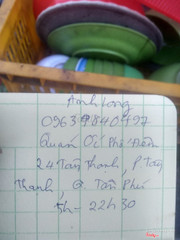 Anh Long
0963 984 0497
Quán Ốc Phê Điên
24 Tân Thành, P. Tân
Thành, Q. Tân Phú
5h - 22h30